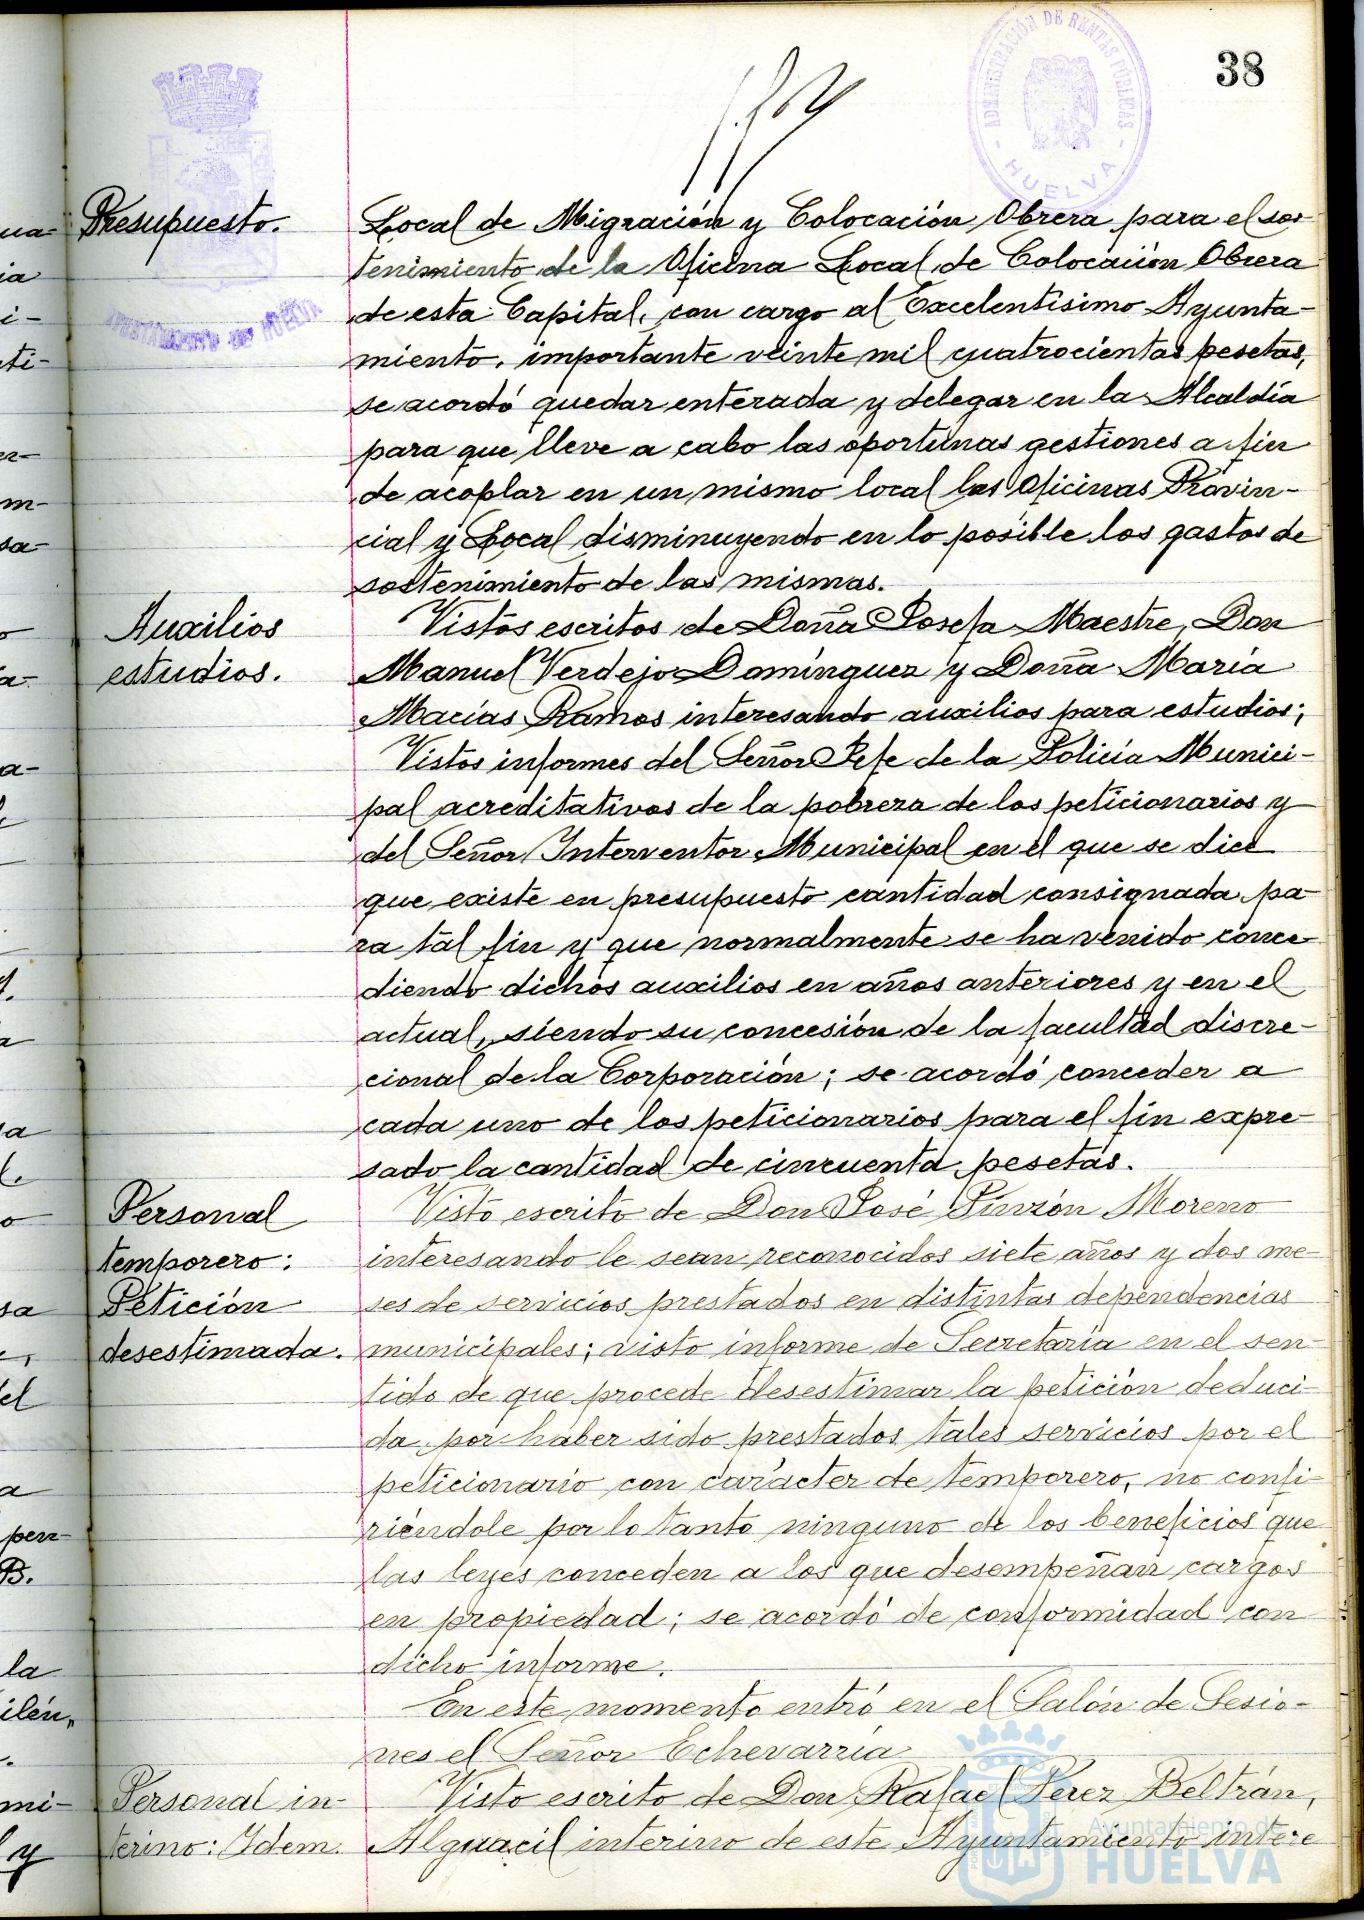 38
ADMINISTRACIÓN DE RENTAS PÚBLICAS
- HUELVA -
AYUNTAMIENTO DE HUELVA
Presupuesto.
Local de Migración y Colocación Obrera para el sos-
tenimiento de la Oficina Local de Colocación Obrera
de esta Capital, con cargo al Excelentísimo Ayunta-
miento, importante veinte mil cuatrocientas pesetas,
se acordó quedar enterada y delegar en la Alcaldía
para que lleve a cabo las oportunas gestiones a fin
de acoplar en un mismo local las Oficinas Provin-
cial y Local disminuyendo en lo posible los gastos de
sostenimiento de las mismas.
Auxilios
estudios.
Vistos escritos de Doña Josefa Maestre, Don
Manuel Verdejo Domínguez y Doña María
Macías Ramos interesando auxilios para estudios;
Vistos informes del Señor Jefe de la Policía Munici-
pal acreditativos de la pobreza de los peticionarios y
del Señor Interventor Municipal en el que se dice
que existe en presupuesto cantidad consignada pa-
ra tal fin y que normalmente se ha venido conce-
diendo dichos auxilios en años anteriores y en el
actual, siendo su concesión de la facultad discre-
cional de la Corporación; se acordó conceder a
cada uno de los peticionarios para el fin expre-
sado la cantidad de cincuenta pesetas.
Personal
temporero:
Petición
desestimada.
Visto escrito de Don José Pinzón Moreno
interesando le sean reconocidos siete años y dos me-
ses de servicios prestados en distintas dependencias
municipales; visto informe de Secretaría en el sen-
tido de que procede desestimar la petición deduci-
da por haber sido prestados tales servicios por el
peticionario con carácter de temporero, no confi-
riéndole por lo tanto ninguno de los beneficios que
las leyes conceden a los que desempeñan cargos
en propiedad; se acordó de conformidad con
dicho informe.
En este momento entró en el Salón de Sesio-
nes el Señor Echevarría
Personal in-
terino: Idem.
Visto escrito de Don Rafael Perez Beltrán,
Alguacil interino de este Ayuntamiento intere
Ayuntamiento de
HUELVA